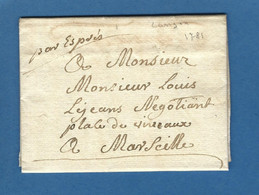 par Exprès
1781
A Monsieur
Monsieur Louis
Lejeans Négotiant
place de
A Marseille